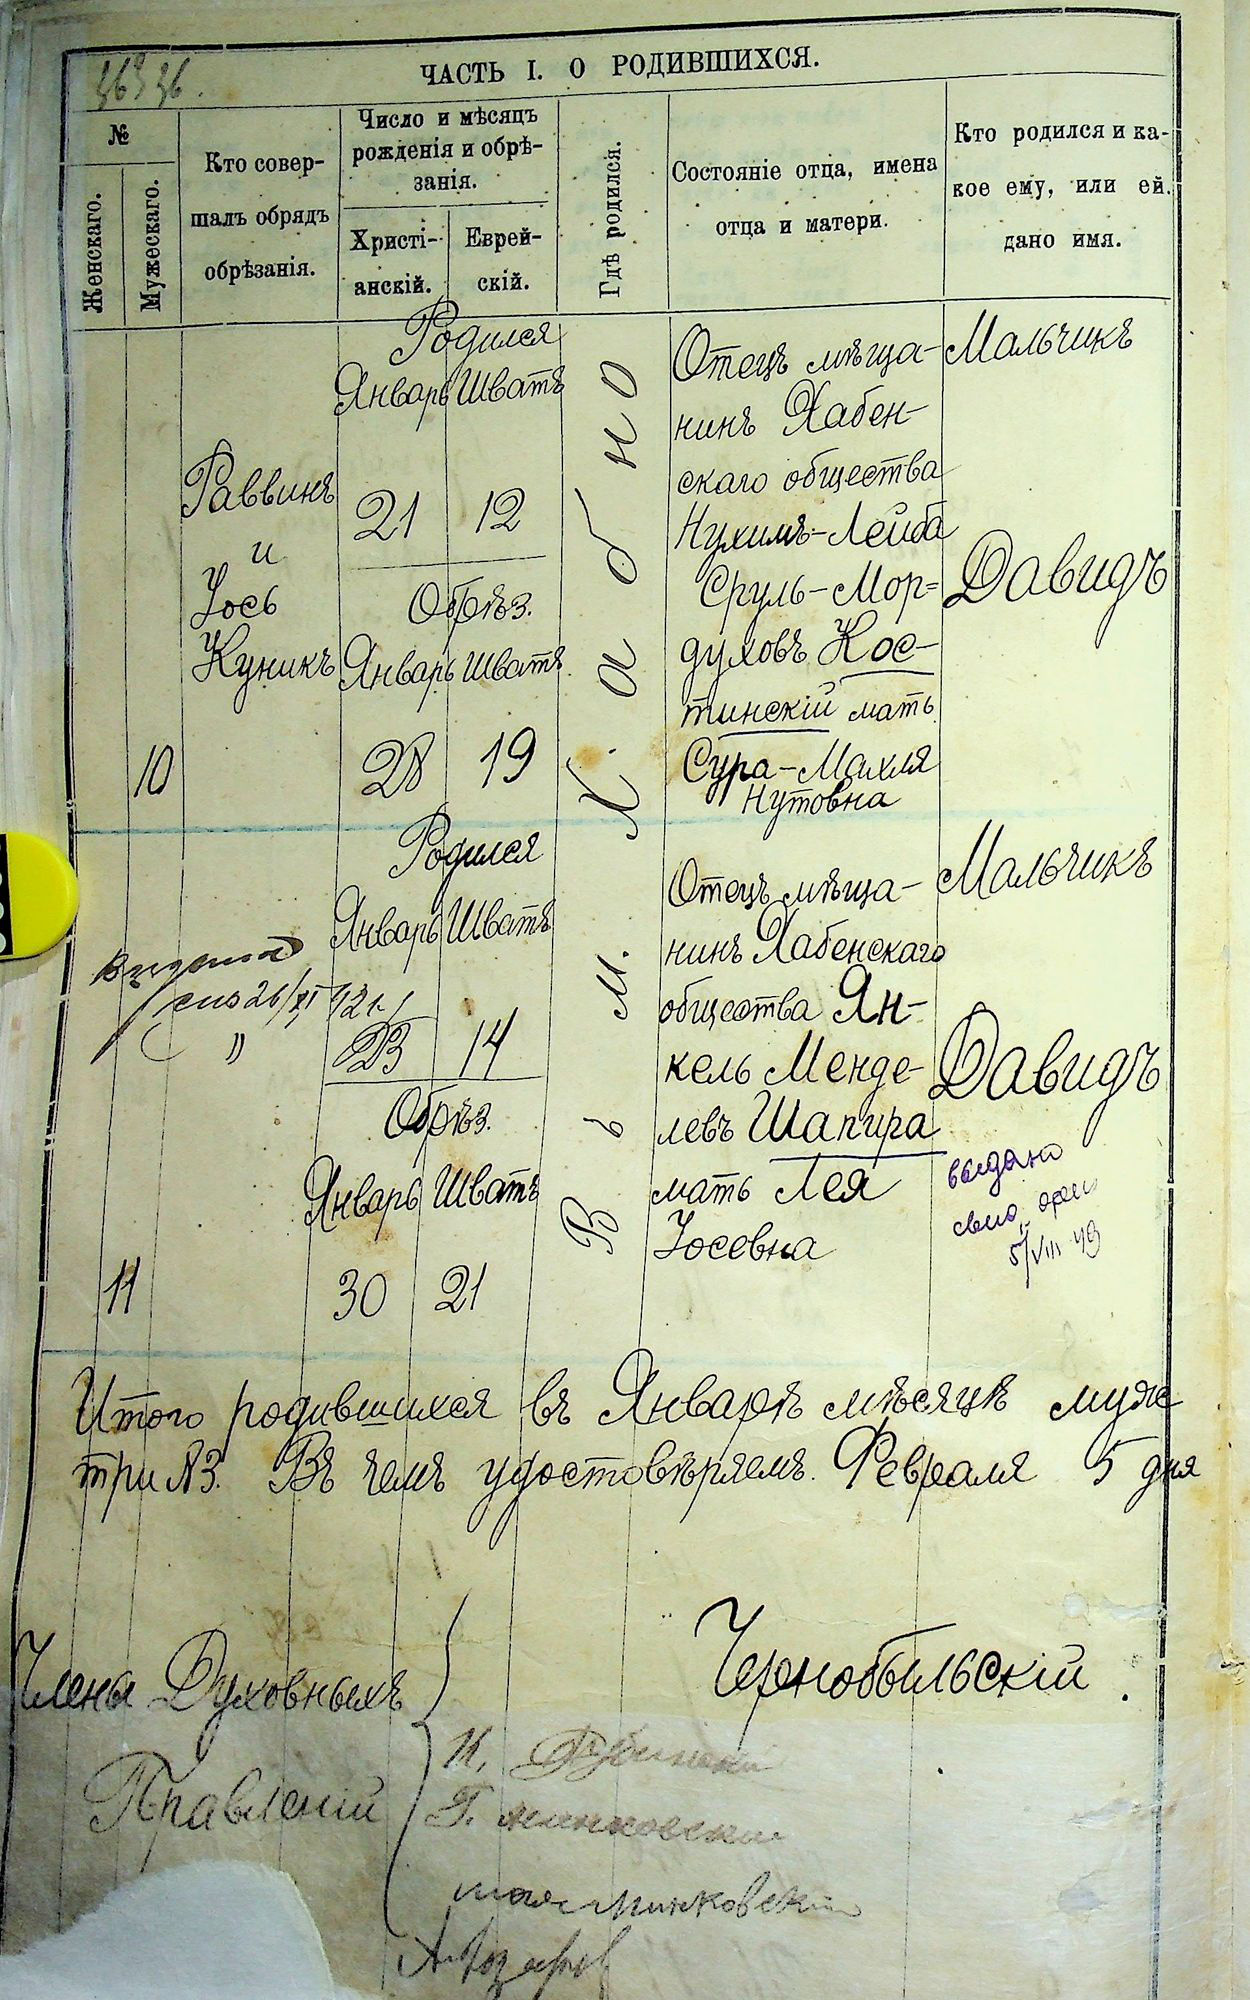 ЧАСТЬ I. О РОДИВШИХСЯ.
№
Женскаго.
Мужескаго.
Кто совер-
шалъ обрядъ
обрѣзанія.
Число и мѣсяцъ
рожденія и обрѣ-
занія.
Христі-
анскій.
Еврей-
скій.
Гдѣ родился.
Состояніе отца, имена
отца и матери.
Кто родился и ка-
кое ему, или ей.
дано имя.
10
Раввинъ
и
Іось
Куникъ
Родился
Январь Шватъ
21 12
Обрѣз.
Январь Шватъ
28 19
Въ м. Хабно
Отецъ мѣща-
нинъ Хабен-
скаго общества
Нухимъ-Лейба
Сруль-Мор=
духовъ Кос-
тинскій мать
Сура-Махля
Нутовна
Мальчикъ
Давидъ
11
Родился
Январь Шватъ
23 14
Обрѣз.
Январь Шватъ
30 21
Отецъ мѣща-
нинъ Хабенскаго
общества Ян-
кель Менде-
левъ Шапира
мать Лея
Іосевна
Мальчикъ
Давидъ
выдано
5/VIII 49
Итого родившихся въ Январѣ мѣсяцѣ муж
три №3. Въ чемъ удостовѣряемъ. Февраля 5 дня
Члены Духовныхъ
Правленій
Чернобыльскій.